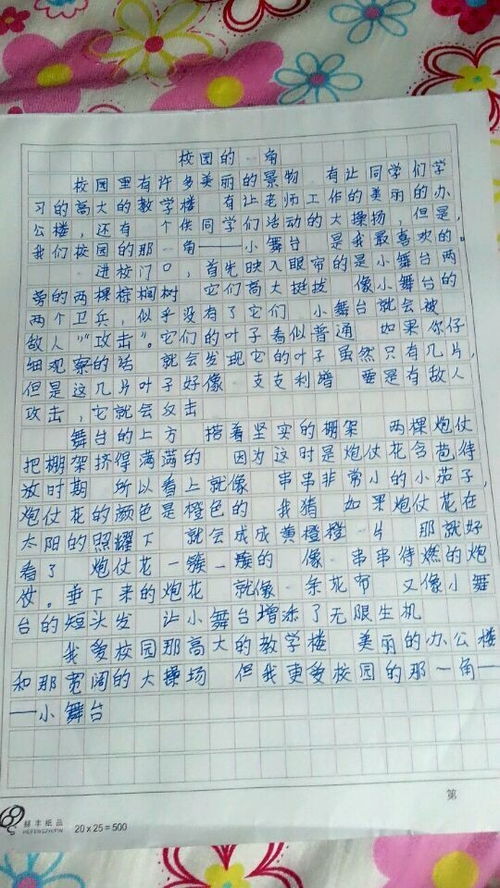 校园的一角
校园里有许多美丽的景物 有让同学们学
习的高大的教学楼 有让老师工作的美丽的办
公楼，还有 个供同学们活动的大操场，但是，
我们校园的那一角——小舞台 是我最喜欢的。
进校门口，首先映入眼帘的是小舞台两
旁的两棵棕榈树 它们高大挺拔 像小舞台的
两个卫兵，似乎没有了它们 小舞台就会被
敌人"攻击"。它们的叶子看似普通 如果你仔
细观察的话 就会发现它的叶子虽然只有几片，
但是这几片叶子好像 支支利 要是有敌人
攻击，它就会攻击
舞台的上方 搭着坚实的棚架 两棵炮仗
把棚架挤得满满的 因为这时是炮仗花含苞待
放时期 所以看上就像 串串非常小的小茄子，
炮仗花的颜色是橙色的 我猜 如果炮仗花在
太阳的照耀下 就会成成黄橙橙一片 那就好
看了 炮仗花一簇一簇的 像一串串待燃的炮
仗。垂下来的炮花 就像一条花布 又像小舞
台的短头发 让小舞台增添了无限生机
我爱校园那高大的教学楼 美丽的办公楼
和那宽阔的大操场 但我更爱校园的那一角—
—小舞台
第
赫丰纸品
HEFENGZHIPIN
20×25=500